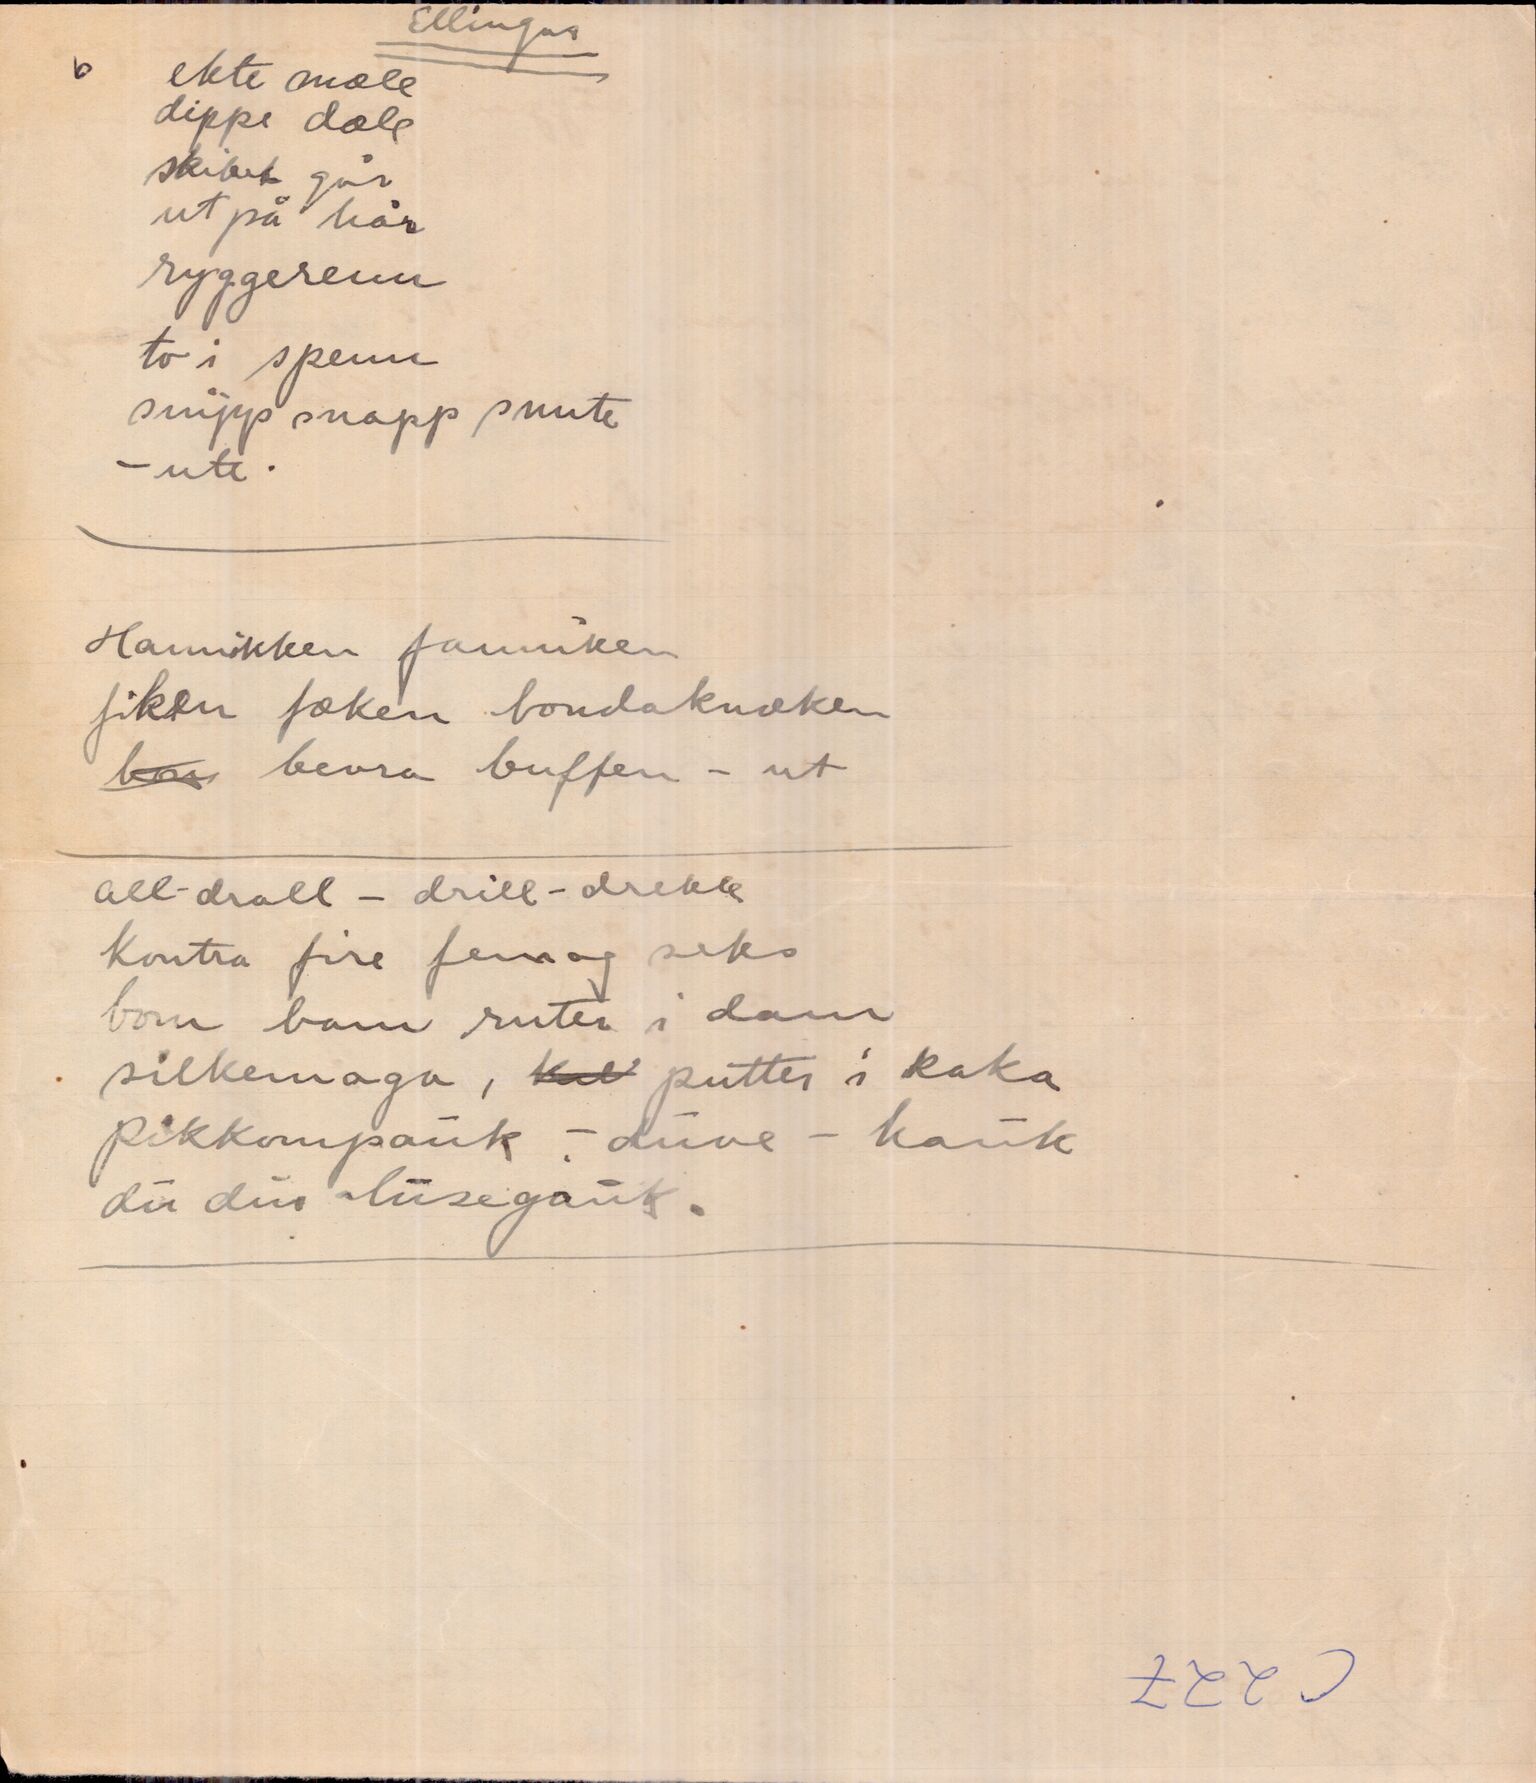 Ellingar
b ekte mæle
dippe dæle
skibet går
ut på hår
ryggerenn
to i spenn
snipp snapp snute
- ute.
Hannikken fanniken
fiken fæken bondaknæken
bevra buffen - ut
all-drall - drill-drekk
kontra fire fem og seks
bom bam ruter i dam
silkemaga, putter i kaka
pikkompaük - düve - haük
dü düs lüsegaük.
C 227